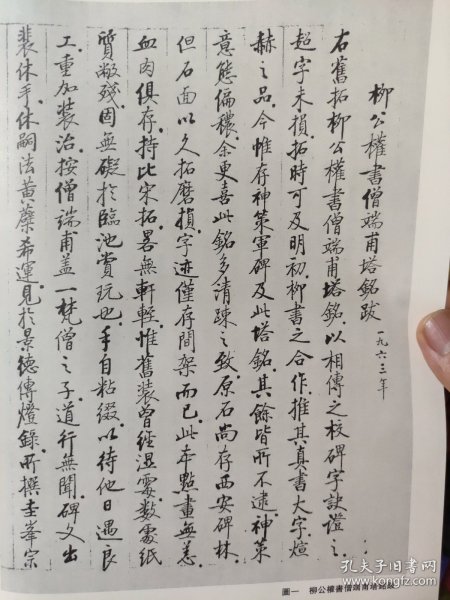 柳公權書僧端甫塔銘跋 一九六三年
右舊拓柳公權書僧端甫塔銘以相傳之校碑字訣證之
超字未損拓時可及明初柳書之合作推其真書大字煊
赫之品今惟存神策軍碑及此塔銘其餘皆所不逮神策
意態偏穠余更喜此銘多清疎之致原石尚存西安碑林
但石面以久拓磨損字迹僅存間架而已此本點畫無恙
血肉俱存持比宋拓畧無軒輊惟舊裝曾經濕霉數處紙
質敝殘固無礙於臨池賞玩也手自粘綴以待他日遇良
工重加裝治按僧端甫蓋一梵僧之子道行無聞碑文出
裴休手休嗣法黄蘗希運見於景德傳燈錄所撰圭峯宗
圖一 柳公權書僧端甫塔銘跋
孔夫子旧书网